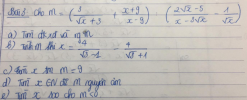 Bài 3 cho M = (3/(√x + 3) + (x + 9)/(x - 9)) : ((2√x - 5)/(x - 3√x) - 1/√x)
a) Tìm đk xđ và
b) Tính M khi x = 4/(√3 - 1) - 4/(√3 + 1)
c) Tìm x sao M = 9
d) Tìm x ∈ N để M nguyên âm
e) Tìm x sao cho M < 0